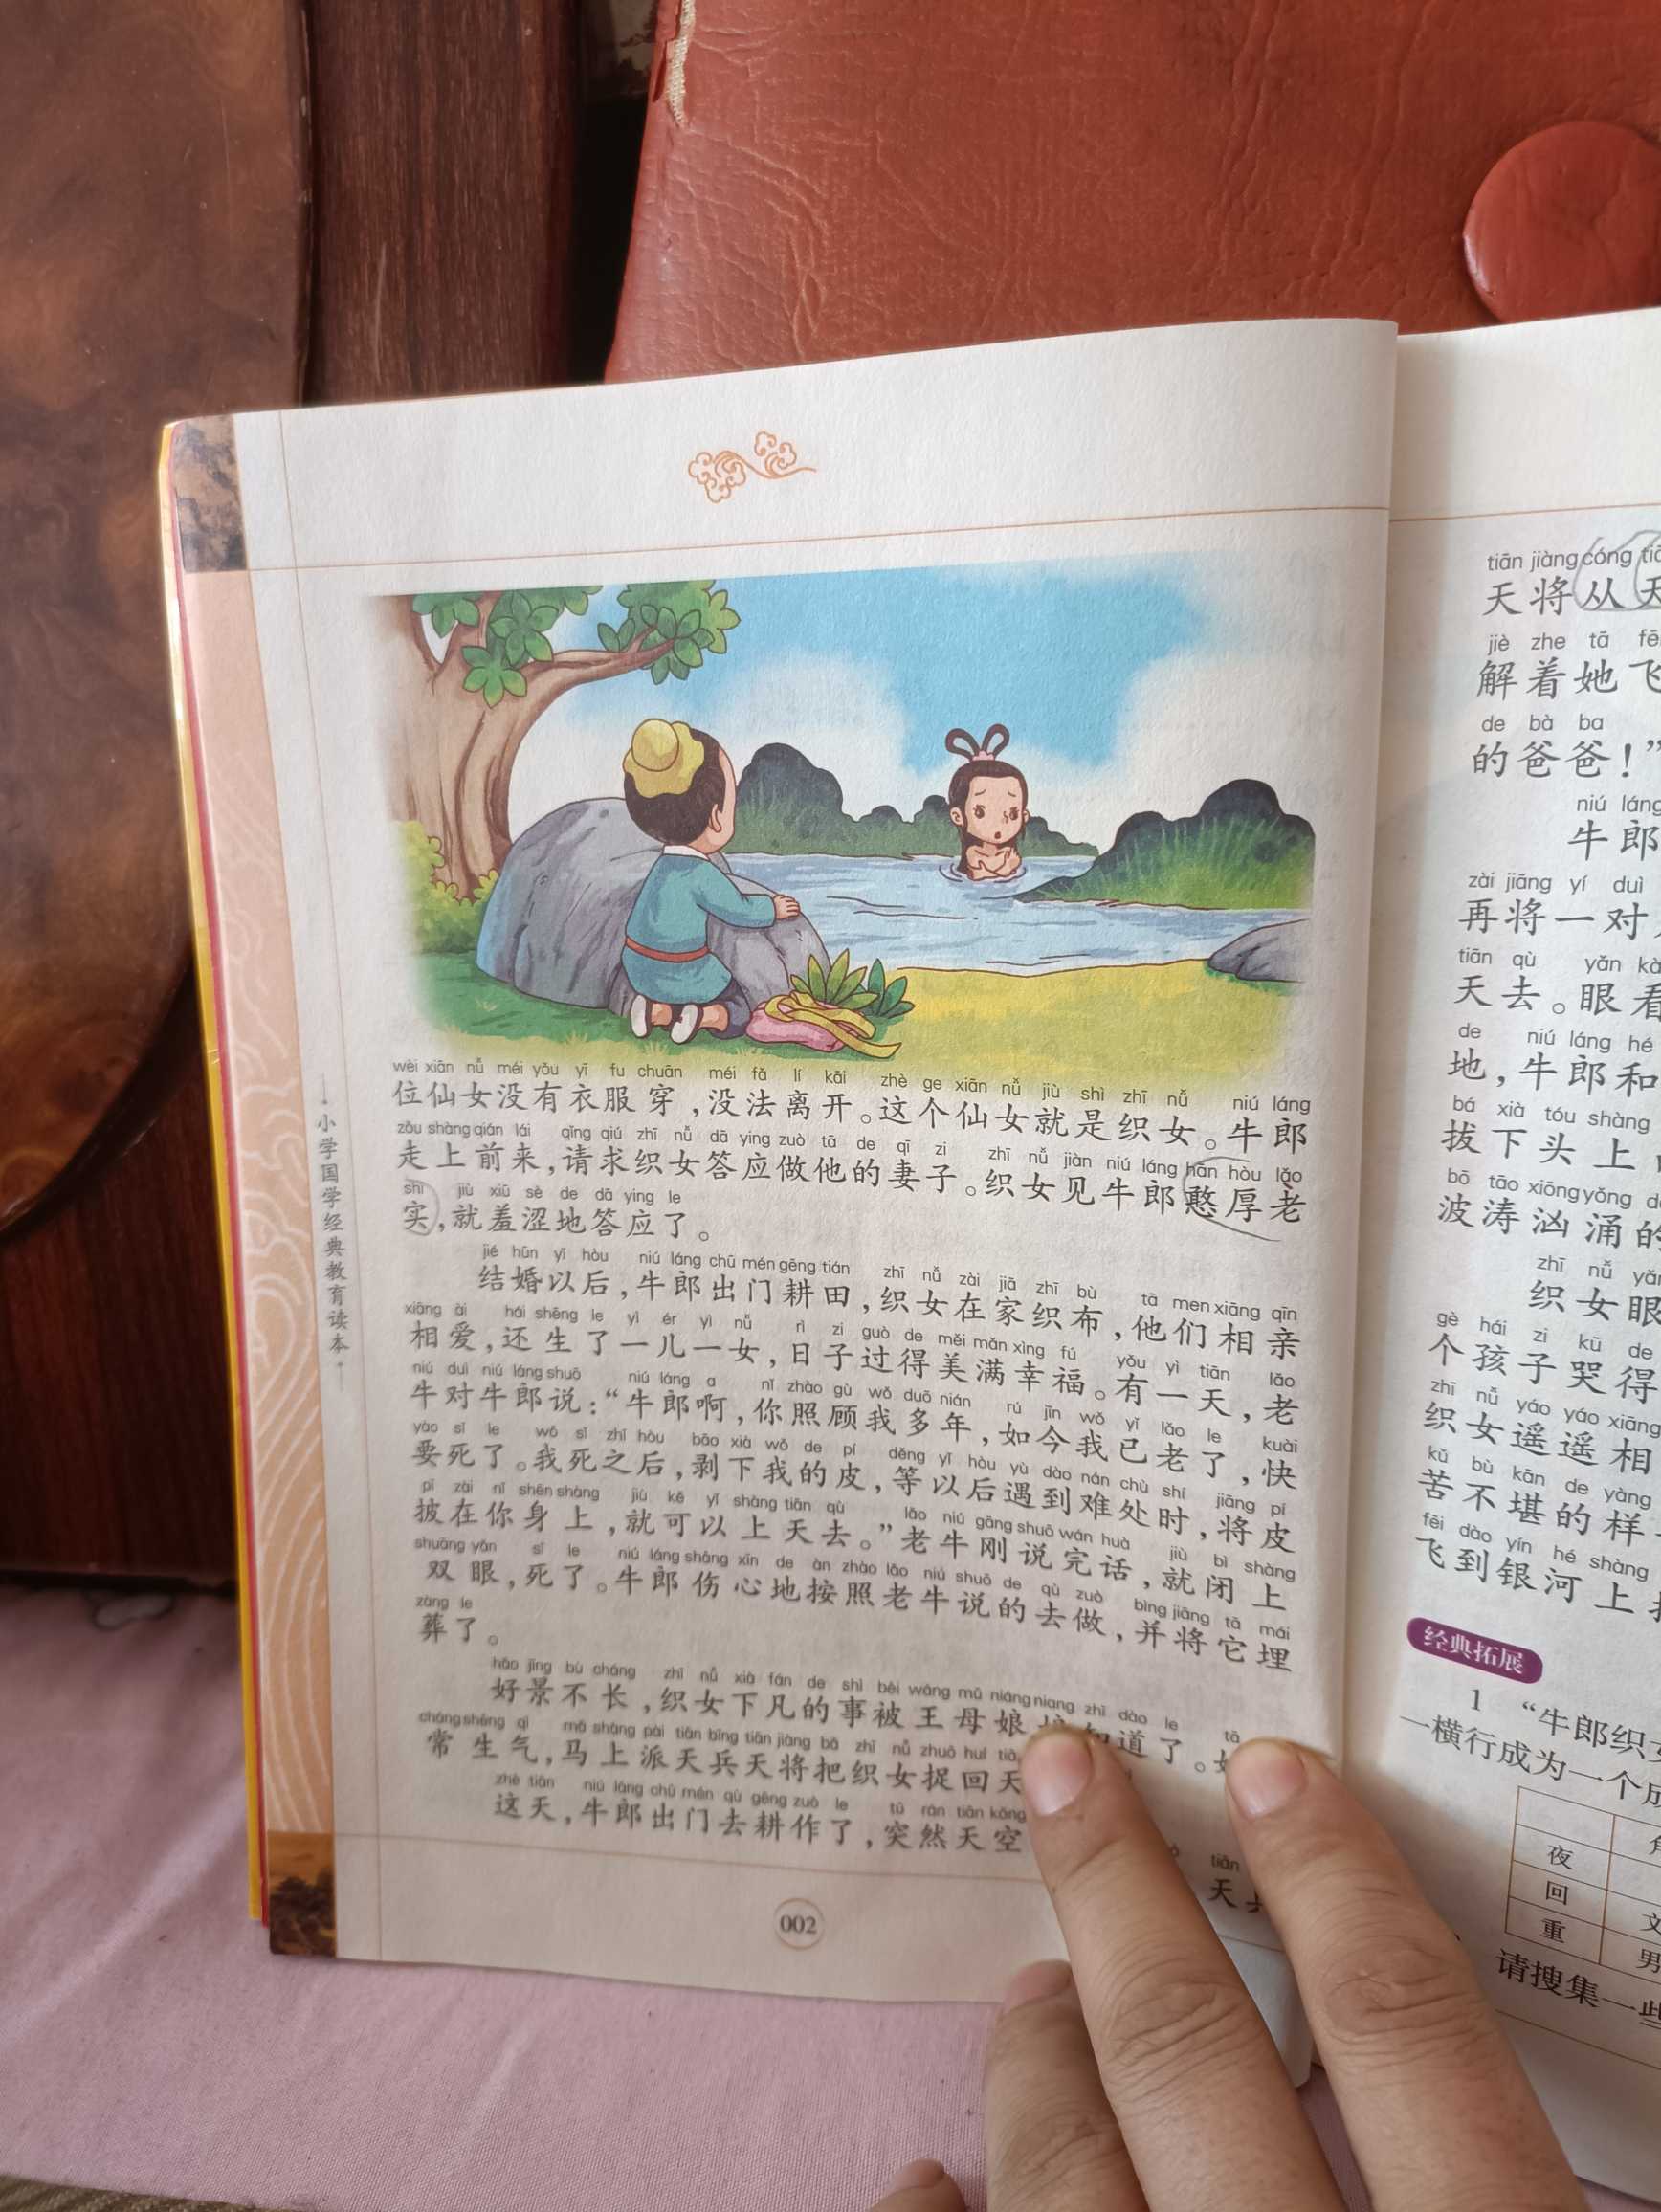 小学国学经典教育读本
wèi xiān nǚ méi yǒu yī fu chuān méi fǎ lí kāi zhè ge xiān nǚ jiù shì zhī nǚ niú láng
位仙女没有衣服穿,没法离开。这个仙女就是织女。牛郎
zǒu shàng qián lái qǐng qiú zhī nǚ dā ying zuò tā de qī zi zhī nǚ jiàn niú láng hān hòu lǎo
走上前来,请求织女答应做他的妻子。织女见牛郎憨厚老
shí jiù xiū sè de dā ying le
实,就羞涩地答应了。
jié hūn yǐ hòu niú láng chū mén gēng tián zhī nǚ zài jiā zhī bù tā men xiāng qīn
结婚以后,牛郎出门耕田,织女在家织布,他们相亲
xiāng ài hái shēng le yì ér yì nǚ rì zi guò de měi mǎn xìng fú yǒu yì tiān lǎo
相爱,还生了一儿一女,日子过得美满幸福。有一天,老
niú duì niú láng shuō niú láng a nǐ zhào gù wǒ duō nián rú jīn wǒ yǐ lǎo le kuài
牛对牛郎说:“牛郎啊,你照顾我多年,如今我已老了,快
yào sǐ le wǒ sǐ zhī hòu bāo xià wǒ de pí děng yǐ hòu yù dào nán chù shí jiāng pí
要死了。我死之后,剥下我的皮,等以后遇到难处时,将皮
pī zài nǐ shēn shàng jiù kě yǐ shàng tiān qù lǎo niú gāng shuō wán huà jiù bì shàng
披在你身上,就可以上天去。”老牛刚说完话,就闭上
shuāng yǎn sǐ le niú láng shāng xīn de àn zhào lǎo niú shuō de qù zuò bìng jiāng tā mái
双眼,死了。牛郎伤心地按照老牛说的去做,并将它埋
zàng le
葬了。
hǎo jǐng bù cháng zhī nǚ xià fán de shì bèi wáng mǔ niáng niang zhī dào le tā
好景不长,织女下凡的事被王母娘娘知道了。
cháng shēng qì mǎ shàng pài tiān bīng tiān jiàng bǎ zhī nǚ zhuō huí
常生气,马上派天兵天将把织女捉回天
zhè tiān niú láng chū mén qù gēng zuò le tū rán tiān kōng tiān
这天,牛郎出门去耕作了,突然天空 天
002
tiān jiàng cóng
天将从天
jiè zhe tā
解着她飞
de bà ba
的爸爸!”
niú láng
牛郎
zài jiāng yí duì
再将一对
tiān qù yǎn
天去。眼看
de niú láng hé
地,牛郎和
bá xià tóu shàng
拔下头上
bō tāo xiōng yǒng
波涛汹涌的
zhī nǚ
织女眼
gè hái zi kū de
个孩子哭得
zhī nǚ yáo yáo xiāng
织女遥遥相
kǔ bù kān de yàng
苦不堪的样
fēi dào yín hé shàng
飞到银河上
经典拓展
1 “牛郎织
一横行成为一个成
夜
回
重
男
请搜集一些